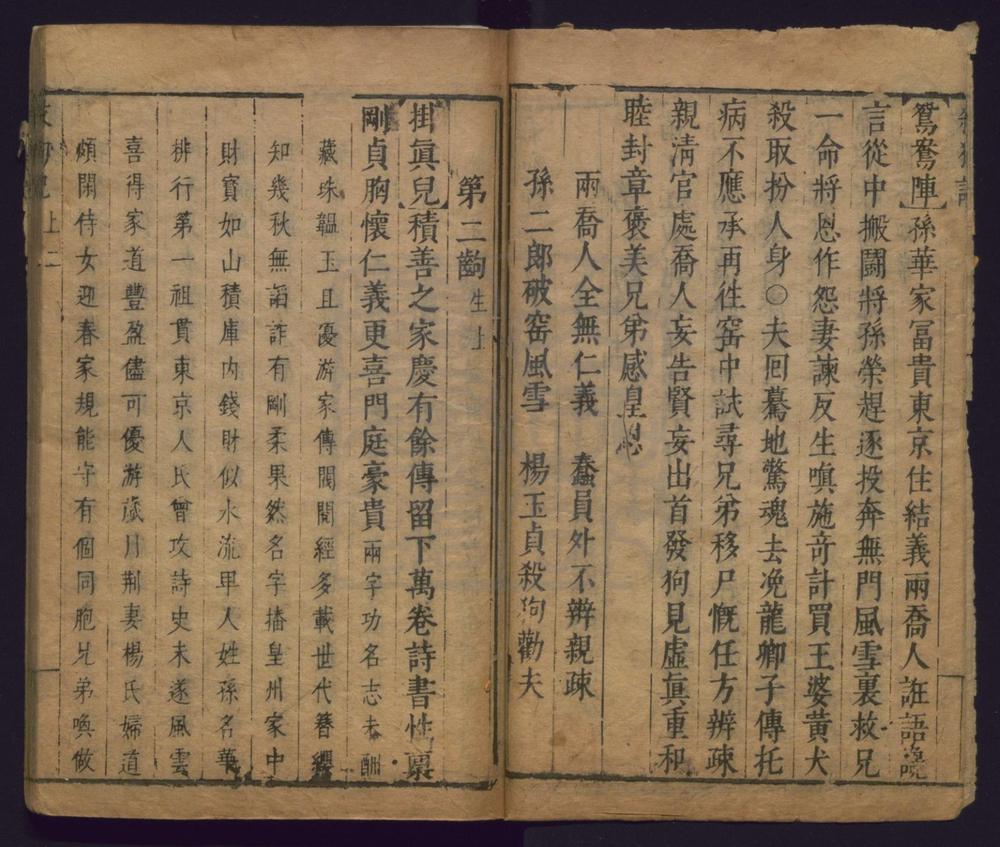 【鴛鴦陣】孫華家冨貴東京住結義兩喬人誑語讒
言從中搬鬪將孫榮趕逐投奔無門風雪裏救兄
一命將恩作怨妻諫反生嗔施竒計買王婆黃犬
殺取扮人身○夫囘驀地驚魂去凂龍卿子傳托
病不應承再徃窑中試尋兄弟移尸慨任方辨疎
親淸官處喬人妄告賢妾出首發狗見虛眞重和
睦封章褒美兄弟感皇恩
兩喬人全無仁義　蠢員外不辨親疎
孫二郎破窑風雪　楊玉貞殺狗勸夫
第二齣 生上
【掛眞兒】積善之家慶有餘傳留下萬卷詩書性稟
剛貞胸懷仁義更喜門庭豪貴兩字功名志未酬
藏珠韞玉且優游家傳閥閱經多載世代簪纓
知幾秋無謟詐有剛柔果然名字播皇州家中
財寳如山積庫内錢財似水流卑人姓孫名華
排行第一祖貫東京人氏曾攻詩史未遂風雲
喜得家道豐盈儘可優游歲月荆妻楊氏婦道
頗閑侍女迎春家規能守有個同胞兄弟喚做
上二